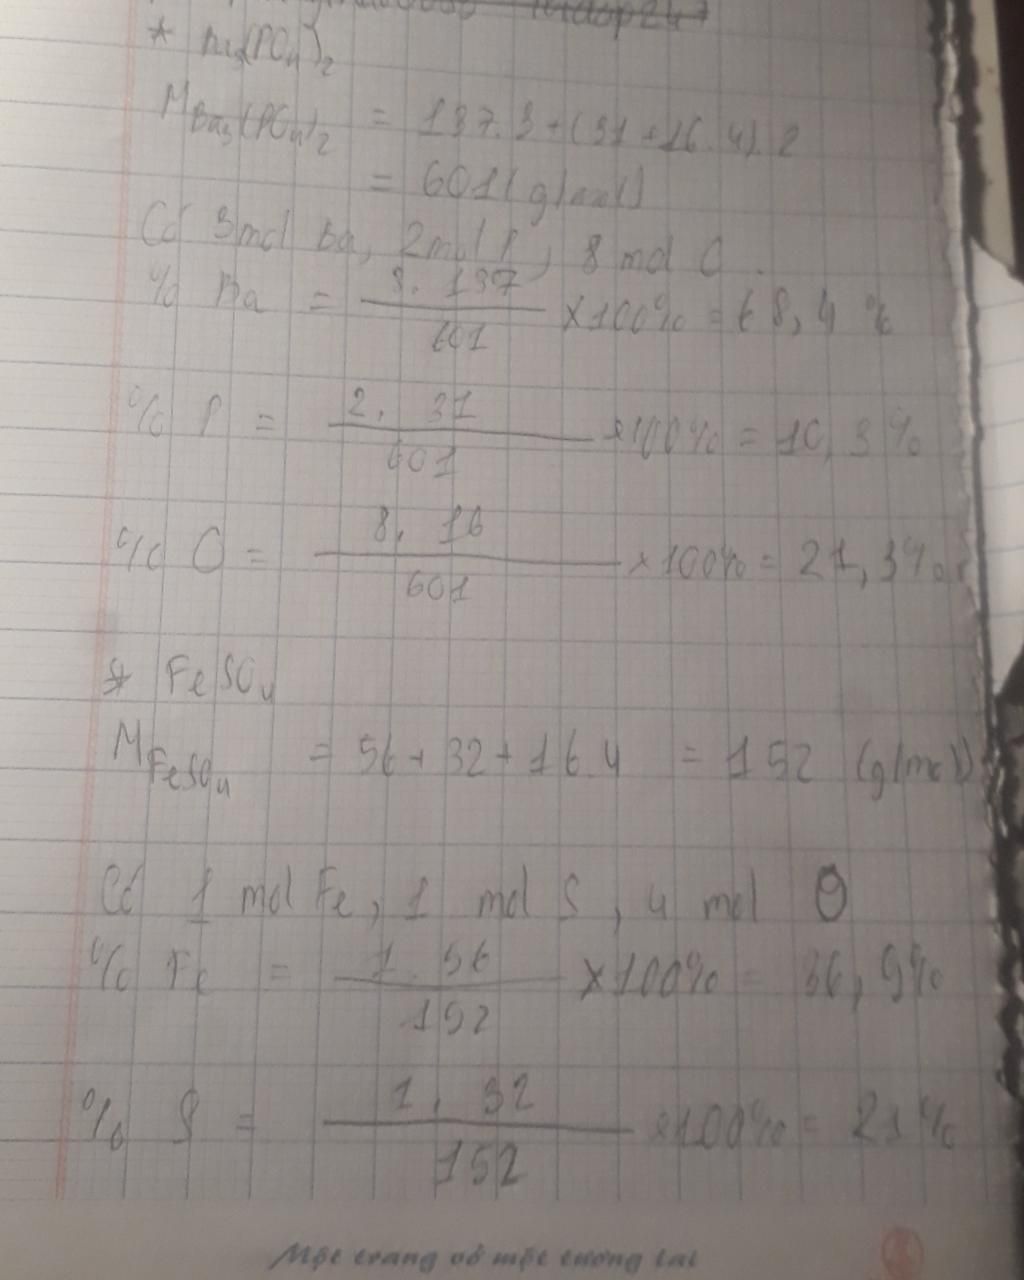 * Ba3(PO4)2
M Ba3(PO4)2 = 137.3+(31+16.4).2
= 601(g/mol)
Có 3mol Ba, 2mol P, 8 mol O.
% Ba = 3.137/601 ×100% = 68,4 %
% P = 2.31/601 ×100% = 10,3%
% O = 8.16/601 ×100% = 21,3%
* FeSO4
M FeSO4 = 56+32+16.4 = 152 (g/mol)
Có 1 mol Fe, 1 mol S, 4 mol O
% Fe = 1.56/152 ×100% = 36,9%
% S = 1.32/152 ×100% = 21%
Một trang vở một tương lai